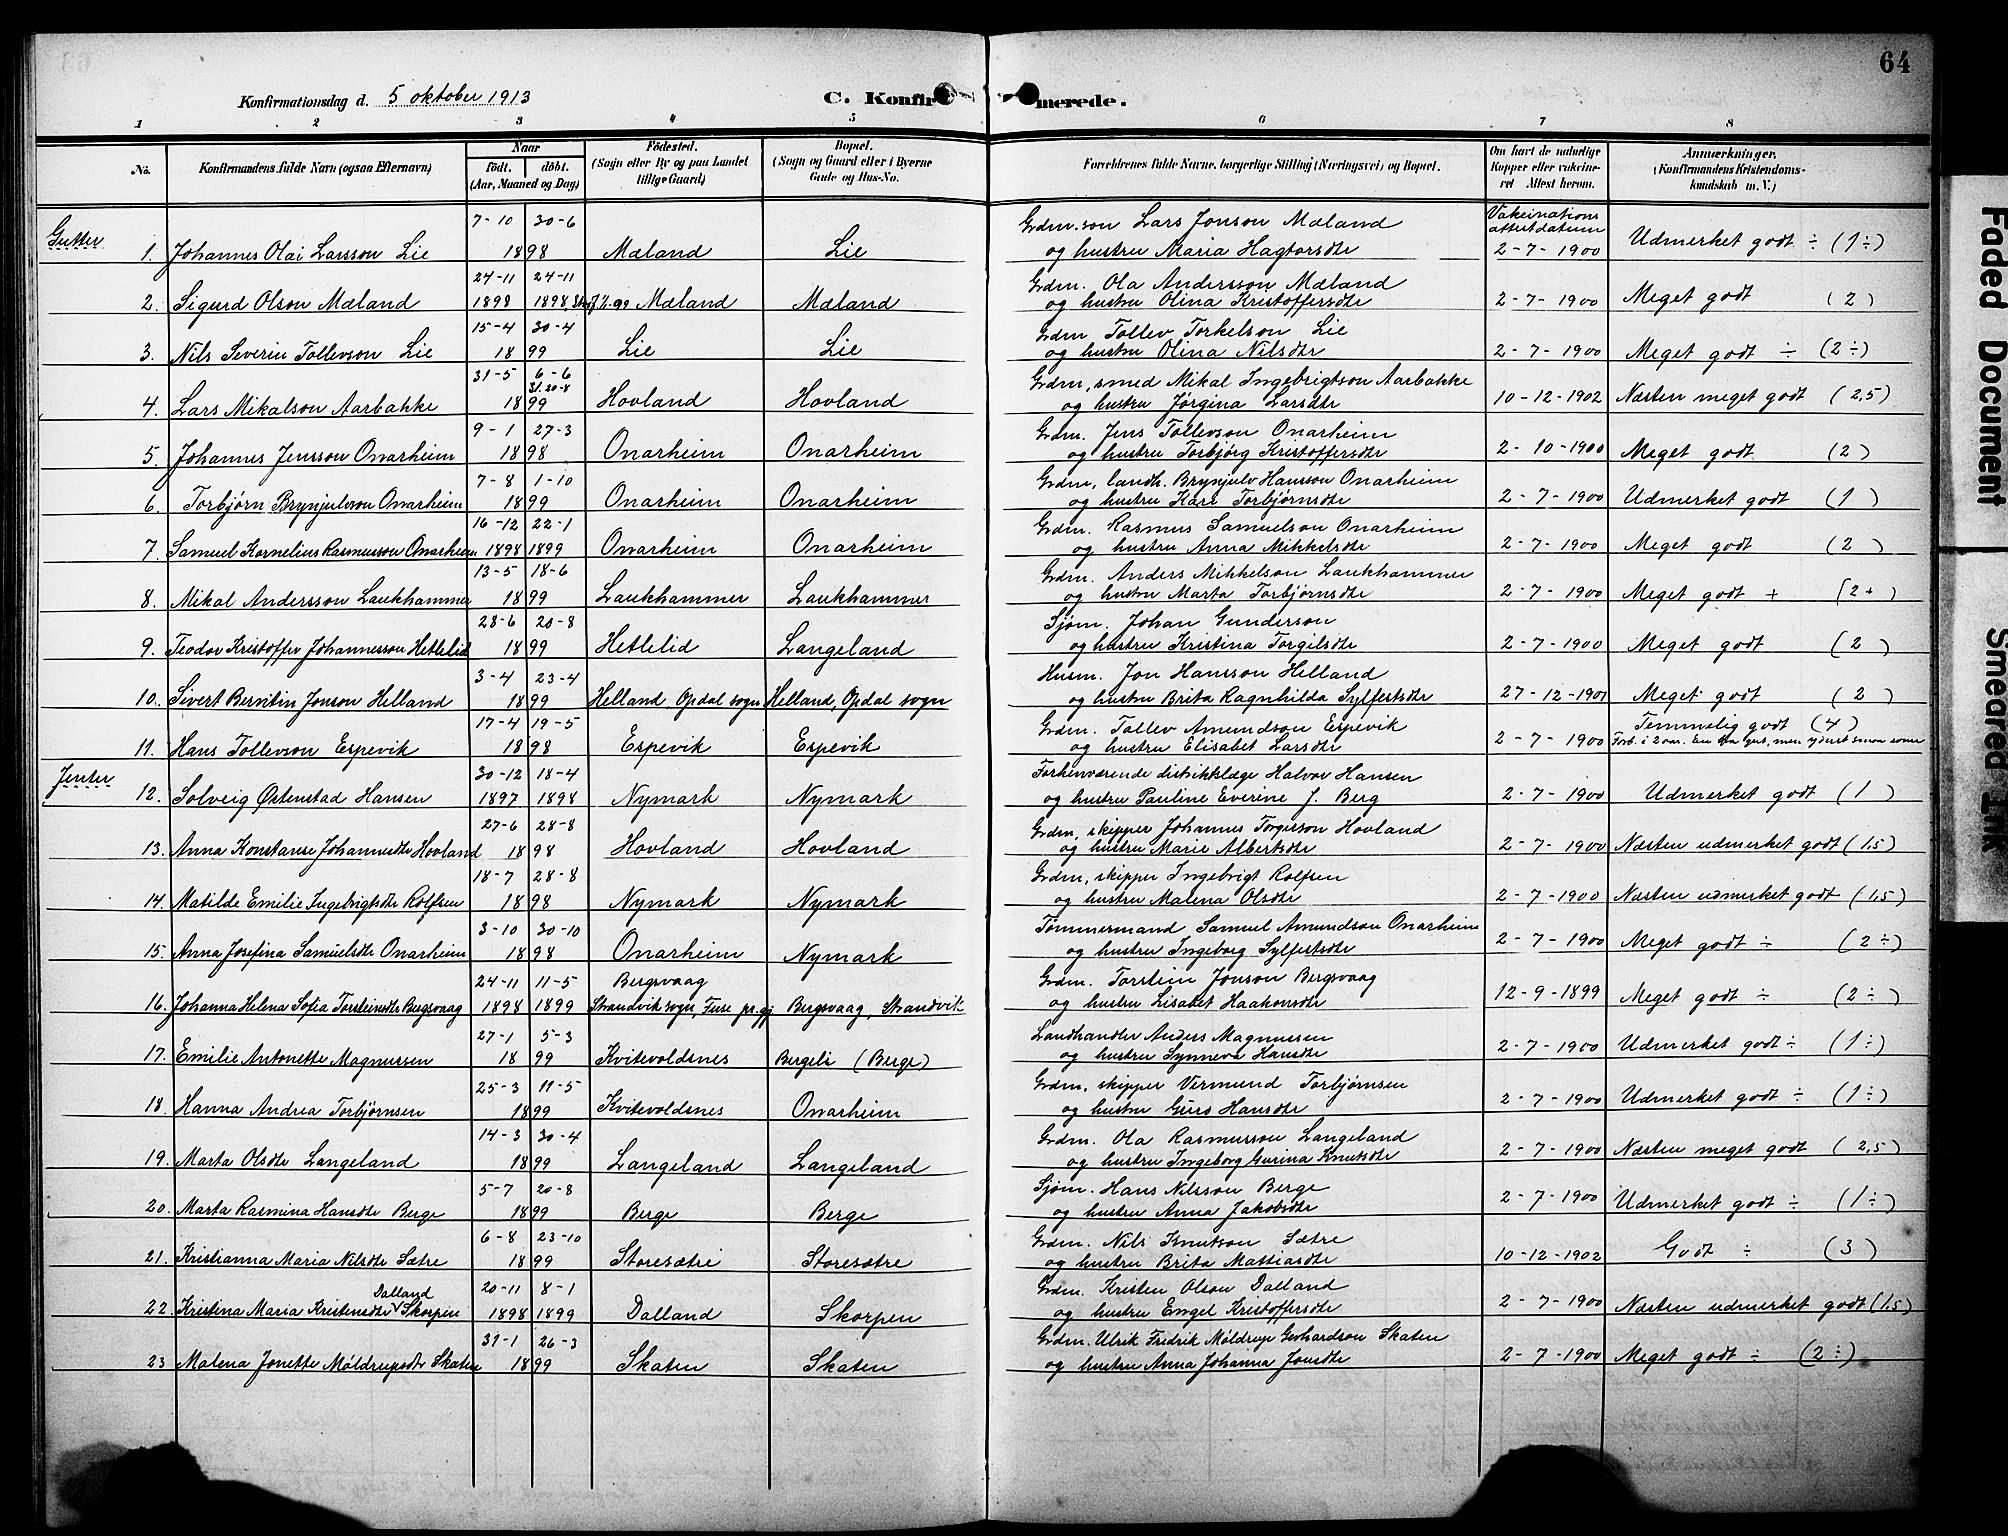 64
Konfirmationsdag d. 5 oktober 1913 C. Konfirmerede.
1 2 3 4 5 6 7 8
No. Konfirmandens fulde Navn (ogsaa Efternavn) Naar födt. döbt. (Aar, Maaned og Dag) Födested. (Sogn eller By og paa Landet tillige Gaard) Bopæl. (Sogn og Gaard eller i Byerne Gade og Hus-No. Forældrenes fulde Navne, borgerlige Stilling (Næringsvei) og Bopæl. Om havt de naturlige Kopper eller vakcineret Attest herom. Anmærkninger. (Konfirmandens Kristendomskundskab m. V.)
Gutter
7-10 30-6 Grdm. son Lars Jonson Mæland Vakcinations attest datum
1. Johannes Olai Larsson Lie 1898 Mæland Lie og hustru Maria Hagtorsdtr 2-7-1900 Udmerket godt ÷ (1÷)
24-11 24-11 Grdm. Ola Andersson Mæland
2. Sigurd Olson Mæland 1898 1898 Mæland Mæland og hustru Olina Kristoffersdtr 2-7-1900 Meget godt (2)
15-4 30-4 Grdm Tollev Torkelson Lie
3. Nils Severin Tollevson Lie 1899 Lie Lie og hustru Olina Nilsdtr 2-7-1900 Meget godt ÷ (2÷)
31-5 6-6 Grdm, smed Mikal Ingebrigtson Aarbakke
4. Lars Mikalson Aarbakke 1899 Hovland Hovland og hustru Jørgina Larsdtr 10-12-1902 Næsten meget godt (2,5)
9-1 27-3 Grdm. Jens Tollevson Onarheim
5. Johannes Jensson Onarheim 1898 Onarheim Onarheim og hustru Torbjørg Kristoffersdtr 2-10-1900 Meget godt (2)
7-8 1-10 Grdm, landh. Brynjulv Hansson Onarheim
6. Torbjørn Brynjulvson Onarheim 1899 Onarheim Onarheim og hustru Kari Torbjørnsdtr 2-7-1900 Udmerket godt (1)
16-12 22-1 Grdm. Rasmus Samuelson Onarheim
7. Samuel Kornelius Rasmusson Onarheim 1898 1899 Onarheim Onarheim og hustru Anna Mikkelsdtr 2-7-1900 Meget godt (2)
13-5 18-6 Grdm. Anders Mikkelson Laukhammer
8. Mikal Andersson Laukhammer 1899 Laukhammer Laukhammer og hustru Marta Torbjørnsdtr 2-7-1900 Meget godt + (2+)
28-6 20-8 Sjøm. Johan Gunderson
9. Teodor Kristoffer Johannesson Hetlelid 1899 Hetlelid Langeland og hustru Kristina Torgilsdtr 2-7-1900 Meget godt (2)
3-4 23-4 Husm. Jon Hansson Helland
10. Sivert Berntin Jonson Helland 1899 Helland Opdal sogn Helland, Opdal sogn og hustru Brita Ragnhilda Sylfertsdtr 27-12-1901 Meget godt (2)
17-4 19-5 Grdm. Tollev Amundson Espevik Temmelig godt (4)
11. Hans Tollevson Espevik 1898 Espevik Espevik og hustru Elisabet Larsdtr 2-7-1900 Forb. i 2 aar. En bra gut, men yderst smaa evner
Jenter
30-12 18-4 Forhenværende distriktslæge Halvor Hansen
12. Solveig Østenstad Hansen 1897 1898 Nymark Nymark og hustru Pauline Everine J. Berg 2-7-1900 Udmerket godt (1)
27-6 28-8 Grdm, skipper Johannes Torgerson Hovland
13. Anna Konstanse Johannesdtr Hovland 1898 Hovland Hovland og hustru Marie Albertsdtr 2-7-1900 Næsten udmerket godt (1,5)
18-7 28-8 Grdm, skipper Ingebrigt Rolfsen
14. Matilde Emilie Ingebrigtsdtr Rolfsen 1898 Nymark Nymark og hustru Malena Olsdtr 2-7-1900 Næsten udmerket godt (1,5)
3-10 30-10 Tømmermand Samuel Amundson Onarheim
15. Anna Josefina Samuelsdtr Onarheim 1898 Onarheim Nymark og hustru Ingeborg Sylfertsdtr 2-7-1900 Meget godt ÷ (2÷)
24-11 11-5 Bergsvaag Grdm. Torstein Jonson Bergsvaag
16. Johanna Helena Sofia Torsteinsdtr Bergsvaag 1898 1899 Strandvik sogn, Fuse pr.gj Bergsvaag, Strandvik og hustru Lisabet Haakonsdtr 12-9-1899 Meget godt ÷ (2÷)
27-1 5-3 Landhandler Anders Magnussen
17. Emilie Antonette Magnussen 1899 Kvitevoldsnes Bergeli (Berge) og hustru Synneva Hansdtr 2-7-1900 Udmerket godt ÷ (1÷)
25-3 11-5 Grdm, skipper Vermund Torbjørnsen
18. Hanna Andrea Torbjørnsen 1899 Kvitevoldsnes Onarheim og hustru Guro Hansdtr 2-7-1900 Udmerket godt ÷ (1÷)
14-3 30-4 Grdm. Ola Rasmusson Langeland
19. Marta Olsdtr Langeland 1899 Langeland Langeland og hustru Ingeborg Gurina Knutsdtr 2-7-1900 Næsten meget godt (2,5)
5-7 20-8 Sjøm. Hans Nilsson Berge
20. Marta Rasmina Hansdtr Berge 1899 Berge Berge og hustru Anna Jakobsdtr 2-7-1900 Udmerket godt ÷ (1÷)
6-8 23-10 Grdm. Nils Knutson Sætre
21. Kristianna Maria Nilsdtr Sætre 1899 Storesætre Storesætre og hustru Brita Mattiasdtr 10-12-1902 Godt ÷ (3)
Dalland 20-11 8-1 Grdm. Kristen Olson Dalland
22. Kristina Maria Kristensdtr Skorpen 1898 1899 Dalland Skorpen og hustru Engel Kristoffersdtr 2-7-1900 Næsten udmerket godt (1,5)
31-1 26-3 Grdm. Ulrik Fredrik Møldrup Gerhardson Skaten
23 Malena Jonette Møldrupsdtr Skaten 1899 Skaten Skaten og hustru Anna Johanna Jonsdtr 2-7-1900 Meget godt ÷ (2÷)
Faded Document
Smeared Ink